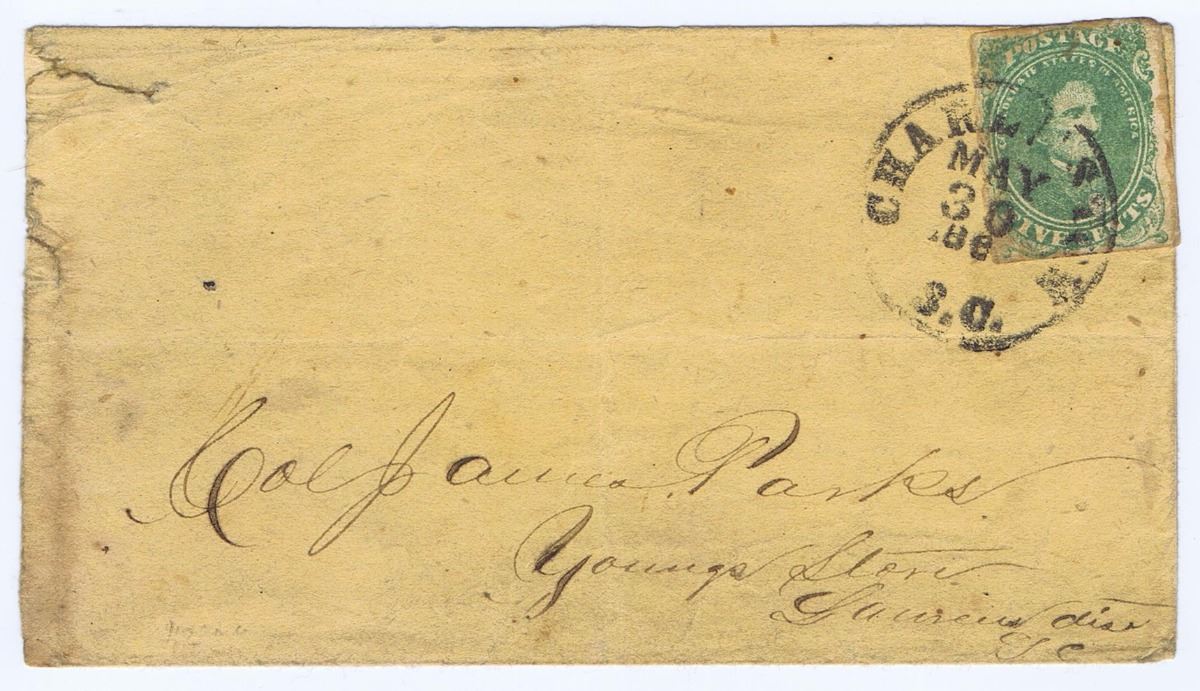 POSTAGE
CONFEDERATE STATES OF AMERICA
FIVE CENTS
CHARLESTON
MAY
30
186
S.C.
Col James Parks
Youngs Store
Laurens dist
S C